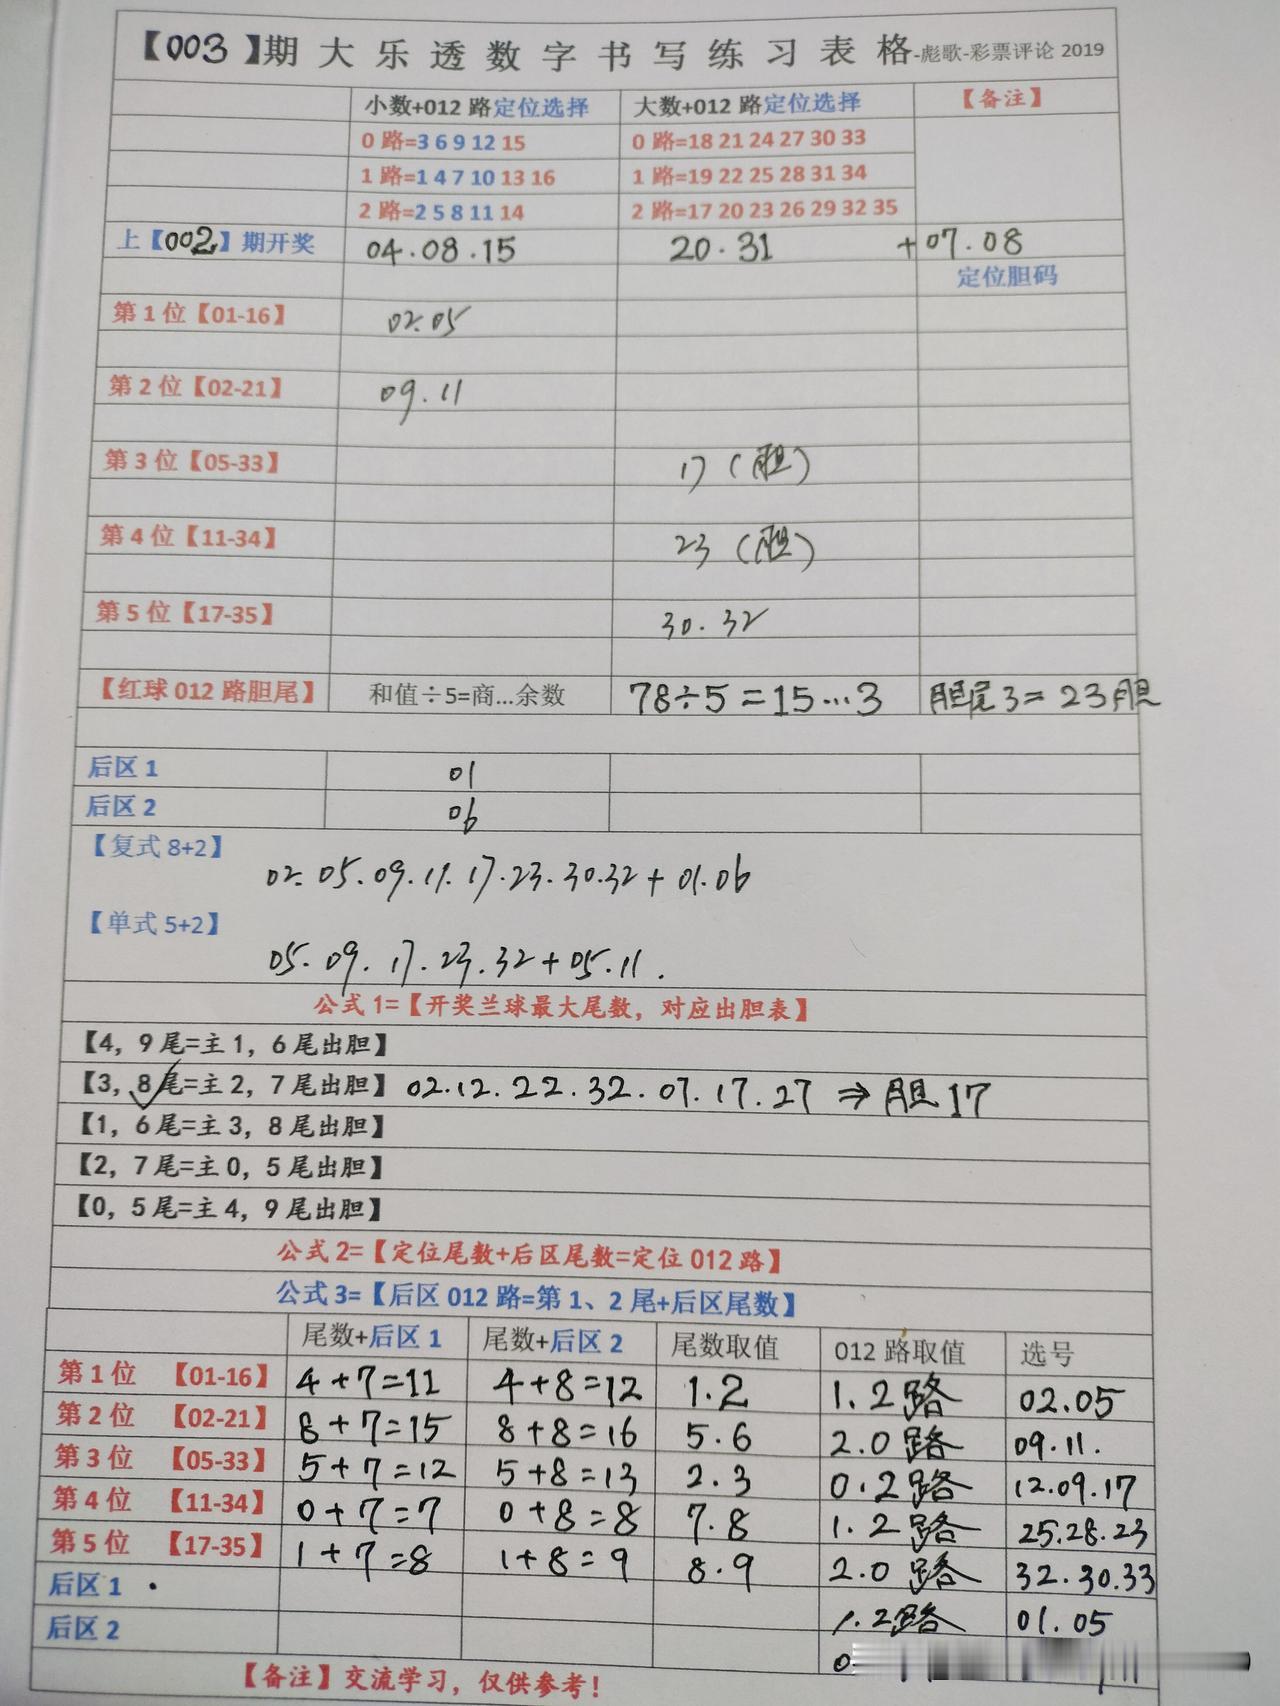 【003】期大乐透数字书写练习表格-彪歌-彩票评论2019
小数+012路定位选择 大数+012路定位选择 【备注】
0路=3 6 9 12 15 0路=18 21 24 27 30 33
1路=1 4 7 10 13 16 1路=19 22 25 28 31 34
2路=2 5 8 11 14 2路=17 20 23 26 29 32 35
上【002】期开奖 04.08.15 20.31 +07.08
定位胆码
第1位【01-16】 02.05
第2位【02-21】 09.11
第3位【05-33】 17(胆)
第4位【11-34】 23(胆)
第5位【17-35】 30.32
【红球012路胆尾】 和值÷5=商...余数 78÷5=15...3 胆尾3=23胆
后区1 01
后区2 06
【复式8+2】
02.05.09.11.17.23.30.32+01.06
【单式5+2】
05.09.17.23.32+05.11.
公式1=【开奖兰球最大尾数，对应出胆表】
【4，9尾=主1，6尾出胆】
【3，8尾=主2，7尾出胆】 02.12.22.32.07.17.27⇒胆17
【1，6尾=主3，8尾出胆】
【2，7尾=主0，5尾出胆】
【0，5尾=主4，9尾出胆】
公式2=【定位尾数+后区尾数=定位012路】
公式3=【后区012路=第1、2尾+后区尾数】
尾数+后区1 尾数+后区2 尾数取值 012路取值 选号
第1位 【01-16】 4+7=11 4+8=12 1.2 1.2路 02.05
第2位 【02-21】 8+7=15 8+8=16 5.6 2.0路 09.11.
第3位 【05-33】 5+7=12 5+8=13 2.3 0.2路 12.09.17
第4位 【11-34】 0+7=7 0+8=8 7.8 1.2路 25.28.23
第5位 【17-35】 1+7=8 1+8=9 8.9 2.0路 32.30.33
后区1 1.2路 01.05
后区2
【备注】交流学习，仅供参考！